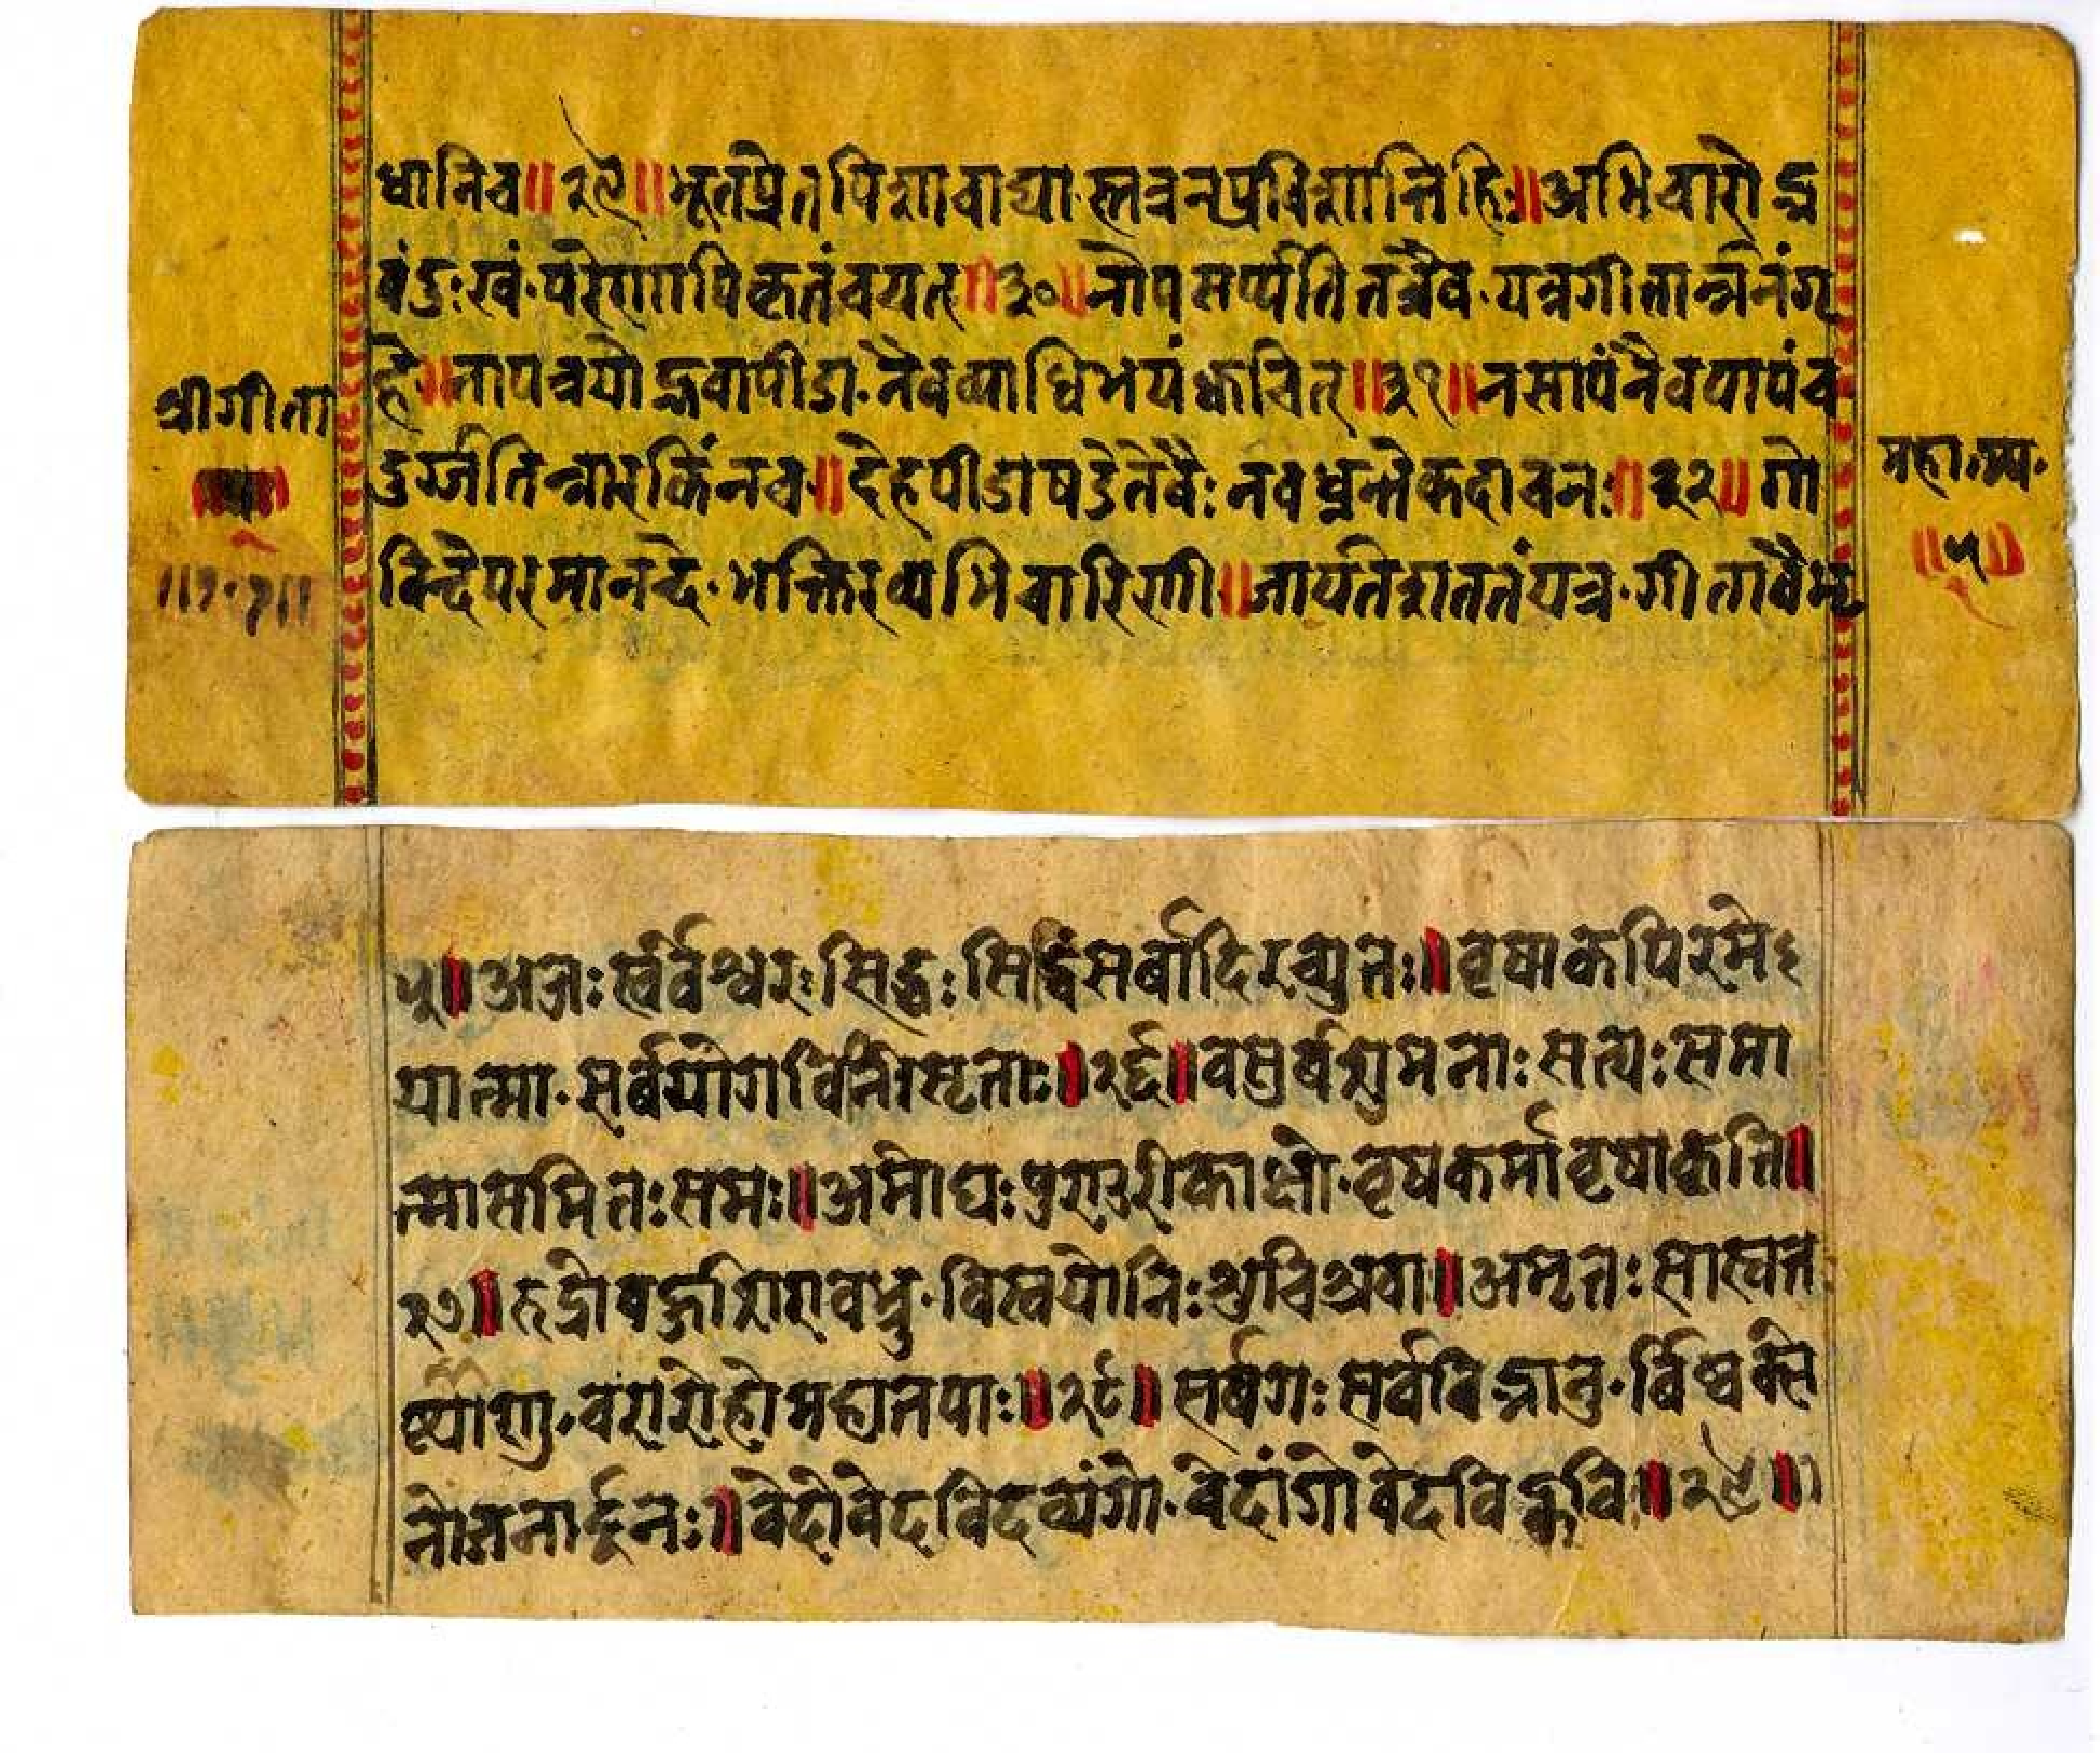 धानिच॥२९॥भूतप्रेतपिशाचाद्या·स्तत्रनप्रविशान्तिहिः॥अभिचारोद्भ
वंदुःखं·परेणापिकृतंचयत्॥३०॥नोपसर्प्पंतितत्रैव·यत्रगीतार्च्चनंगृ
हे॥तापत्रयोद्भवापीडा·नैवव्याधिभयंक्वचित्॥३१॥नसापंनैवपापंच
श्रीगीता
दुर्ग्गतिन्नारकिंनच॥देहपीडाषडेतेवैः नवधन्तेकदाचनः॥३२॥गो
महा·त्म्य·
॥५॥
विन्देपरमानन्दे·भक्तिरव्यभिचारिणी॥जायतेशततंयत्र·गीतावैगृ
५॥अजःर्स्वर्वेश्वरःसिद्धःसिद्धिंसर्वादिरच्युतः॥वृषाकपिरमे
यात्मा·सर्वयोगविनीसृताः॥२६॥वसुर्वशुमनाःसत्यःसमा
त्मासमितःसमः॥अमोघःपुराडरीकाक्षो·वृषकर्मावृषाकृति॥
२७॥रुद्रोवहुशिरावभ्रु·विस्वयोनिःशुचिश्रवा॥अमृतःसास्वत
ष्थाणु·वरारोहोमहातपाः॥२८॥सर्वगःसर्वविद्भानु·र्विष्वक्से
नोजनार्द्दनः॥वेदोवेदविदव्यंगो·वेदांगोवेदवित्कवि॥२९॥